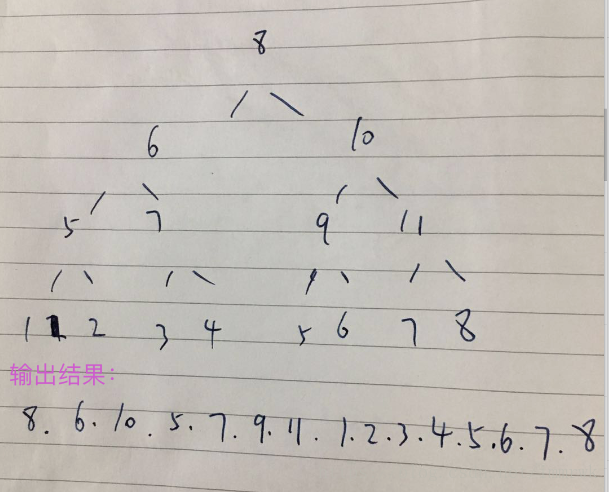 8
6 10
5 7 9 11
1 2 3 4 5 6 7 8
输出结果：
8. 6. 10. 5. 7. 9. 11. 1. 2. 3. 4. 5. 6. 7. 8